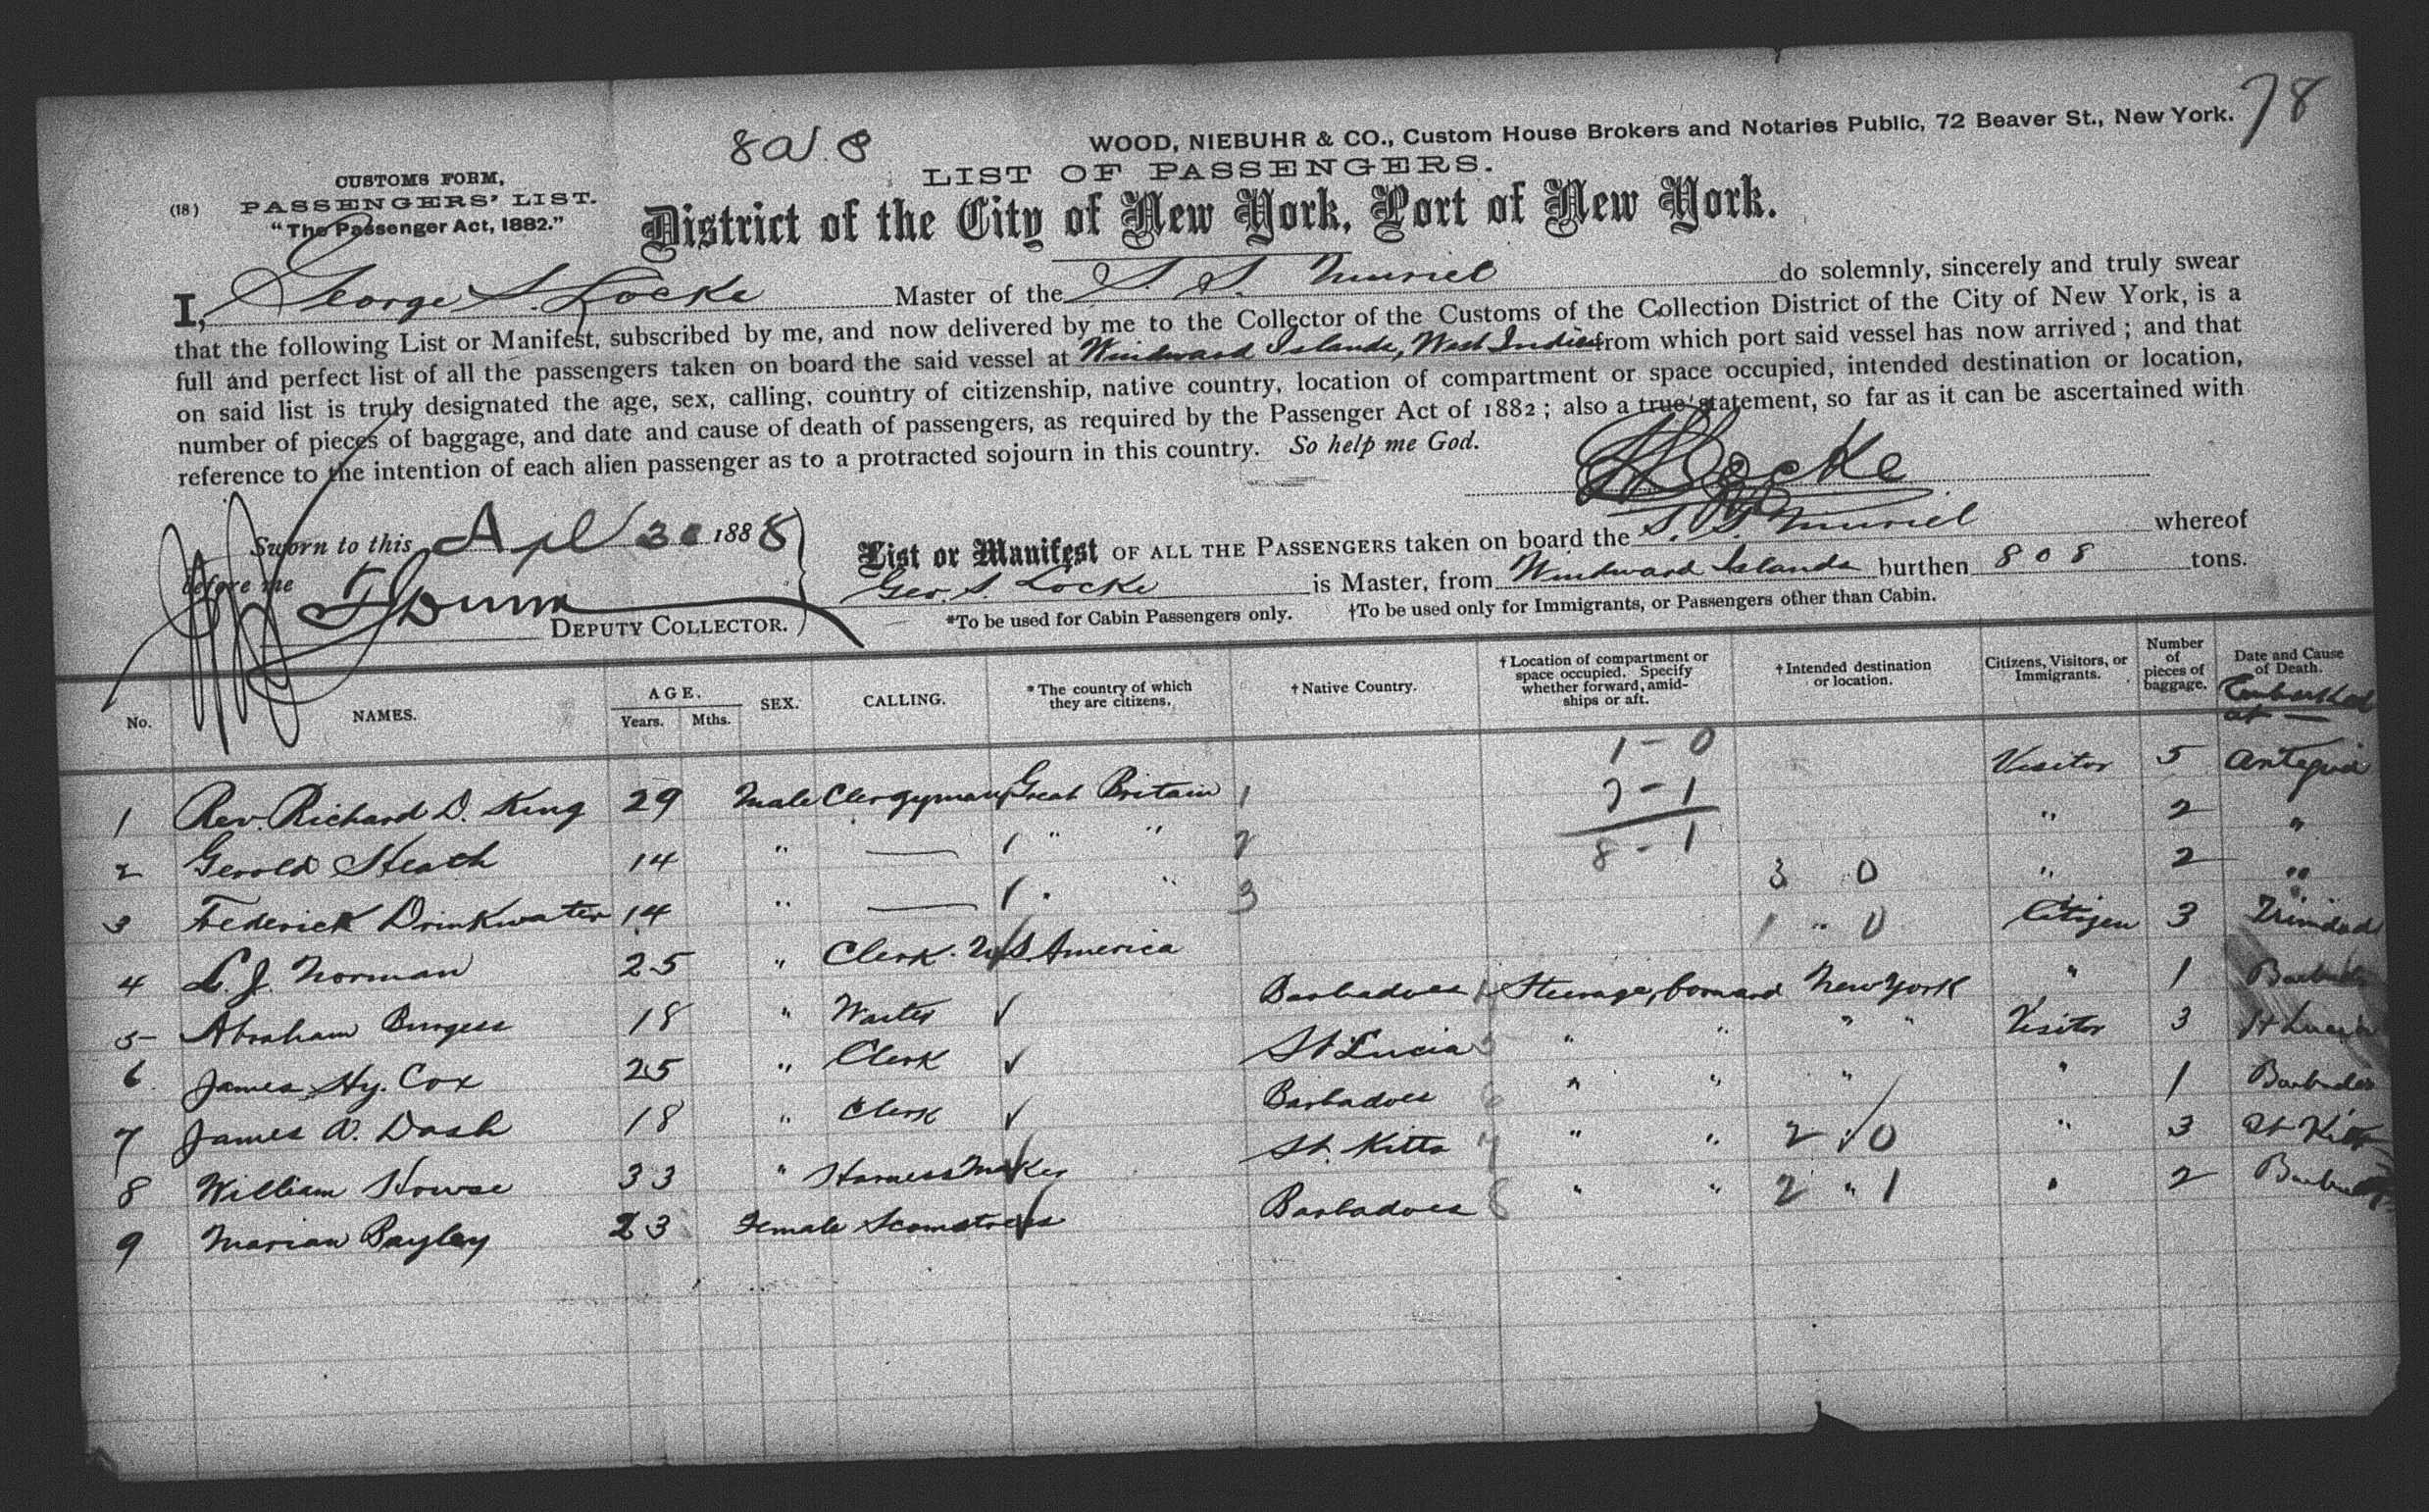 78
8 a.  8
WOOD, NIEBUHR & CO., Custom House Brokers and Notaries Public, 72 Beaver St., New York.
LIST OF PASSENGERS.
(18) CUSTOMS FORM,
PASSENGERS' LIST.
"The Passenger Act, 1882."
District of the City of New York, Port of New York.
I, George S. Locke Master of the S. S. Muriel do solemnly, sincerely and truly swear
that the following List or Manifest, subscribed by me, and now delivered by me to the Collector of the Customs of the Collection District of the City of New York, is a
full and perfect list of all the passengers taken on board the said vessel at Windward Islands, West Indies from which port said vessel has now arrived ; and that
on said list is truly designated the age, sex, calling, country of citizenship, native country, location of compartment or space occupied, intended destination or location,
number of pieces of baggage, and date and cause of death of passengers, as required by the Passenger Act of 1882 ; also a true statement, so far as it can be ascertained with
reference to the intention of each alien passenger as to a protracted sojourn in this country. So help me God.
Locke
Sworn to this Apl 30 1888
before me
Dunn
DEPUTY COLLECTOR.
List or Manifest OF ALL THE PASSENGERS taken on board the S. S. Muriel whereof
Geo. S. Locke is Master, from Windward Islands burthen 808 tons.
*To be used for Cabin Passengers only. †To be used only for Immigrants, or Passengers other than Cabin.
No. NAMES. AGE. Years. Mths. SEX. CALLING. *The country of which they are citizens. †Native Country. †Location of compartment or space occupied. Specify whether forward, amidships or aft. †Intended destination or location. Citizens, Visitors, or Immigrants. Number of pieces of baggage. Date and Cause of Death.
Embarked at —
1 - 0
7 - 1
8 - 1
1 Rev. Richard D. King 29 Male Clergyman Great Britain 1 Visitor 5 Antigua
2 Gerold Heath 14 " — " " 2 " 2 "
3 Frederick Drinkwater 14 " — " " 3 3 0 " 2 "
4 L. J. Norman 25 " Clerk U.S. America 1 " 0 Citizen 3 Trinidad
5 Abraham Burgess 18 " Waiter Barbadoes Steerage, forward New York " 1 Barbados
6 James Hy. Cox 25 " Clerk St Lucia 5 " " " " Visitor 3 St Lucia
7 James A. Dash 18 " Clerk Barbadoes 6 " " " " 1 Barbados
8 William Howse 33 " Harness Maker St. Kitts 7 " " 2 " 0 " 3 St Kitts
9 Marian Bayley 23 Female Seamstress Barbadoes 8 " " 2 " 1 " 2 Barbados